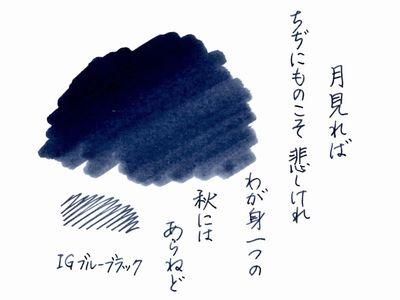 月見れば
ちぢにものこそ悲しけれ
わが身一つの
秋には
あらねど
IGブルーブラック